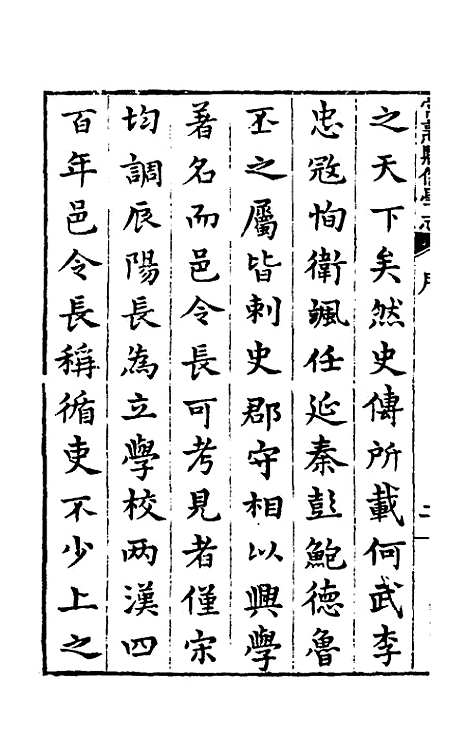 之天下矣然史傳所載何武李
忠冦恂衛颯任延秦彭鮑德魯
丕之屬皆刺史郡守相以興學
著名而邑令長可考見者僅宗
均調辰陽長為立學校两漢四
百年邑令長稱循吏不少上之